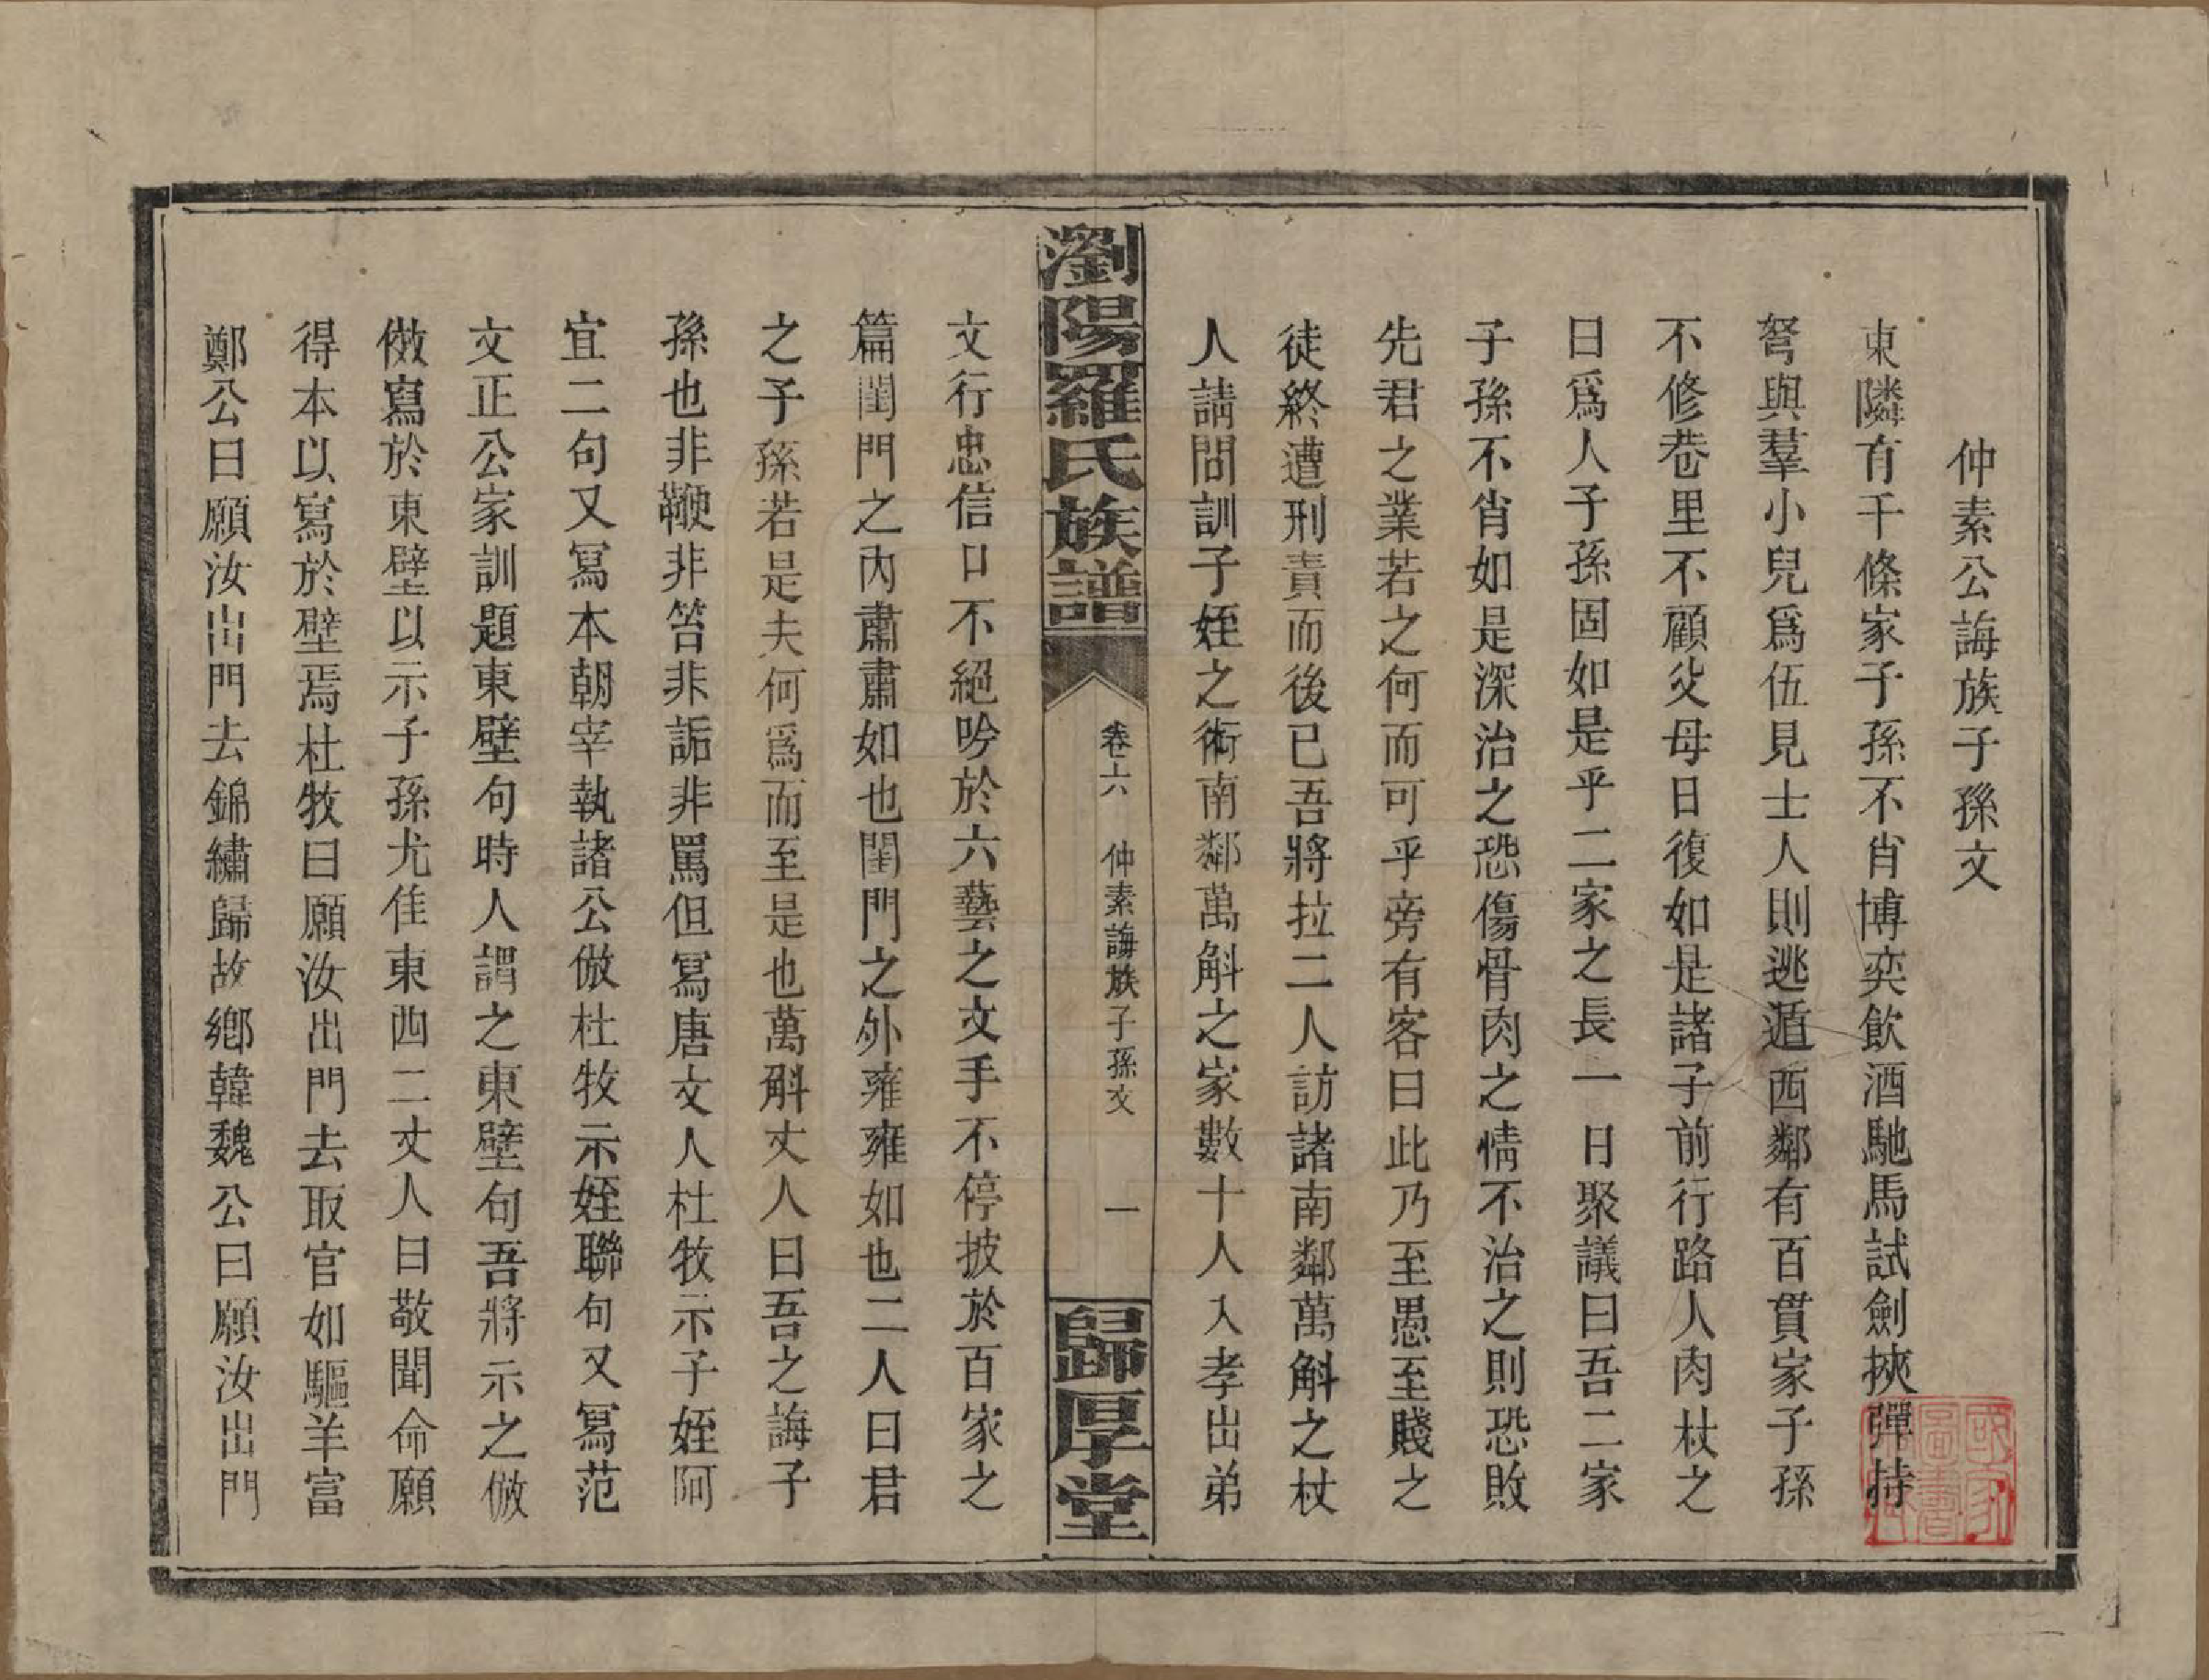 仲素公誨族子孫文
東隣有千條家子孫不肖博奕飲酒馳馬試劍挾彈持
弩與羣小兒爲伍見士人則逃遁西鄰有百貫家子孫
不修巷里不顧父母日復如是諸子前行路人肉杖之
曰爲人子孫固如是乎二家之長一日聚議曰吾二家
子孫不肖如是深治之恐傷骨肉之情不治之則恐敗
先君之業若之何而可乎旁有客曰此乃至愚至賤之
徒終遭刑責而後已吾將拉二人訪諸南鄰萬斛之杖
人請問訓子姪之術南鄰萬斛之家數十人入孝出弟
瀏陽羅氏族譜
卷六
仲素誨族子孫文
一
歸厚堂
文行忠信口不絕吟於六藝之文手不停披於百家之
篇閨門之內肅肅如也閨門之外雍雍如也二人曰君
之子孫若是夫何爲而至是也萬斛丈人曰吾之誨子
孫也非鞭非笞非詬非罵但寫唐文人杜牧示子姪阿
宜二句又寫本朝宰執諸公倣杜牧示姪聯句又寫范
文正公家訓題東壁句時人謂之東壁句吾將示之倣
倣寫於東壁以示子孫尤佳東西二丈人曰敬聞命願
得本以寫於壁焉杜牧曰願汝出門去取官如驅羊富
鄭公曰願汝出門去錦繡歸故鄉韓魏公曰願汝出門
國家圖書館藏